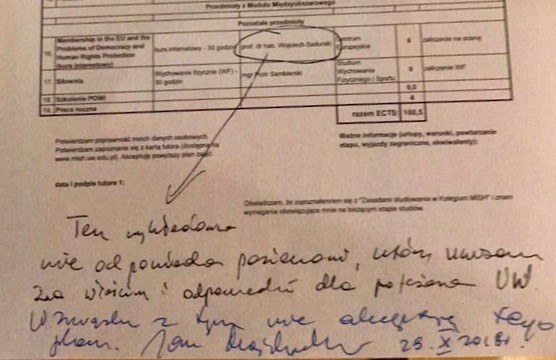 Przedmioty z Modułu Międzyobszarowego
Pozostałe przedmioty
16. Membership in the EU and the Problems of Democracy and Human Rights Protection (kurs internetowy) kurs internetowy - 30 godzin prof. dr hab. Wojciech Sadurski Centrum Europejskie 6 zaliczenie na ocenę
17. Siłownia Wychowanie fizyczne (WF) - 30 godzin mgr Piotr Sambierski Studium Wychowania Fizycznego i Sportu 0 zaliczenie WF
18. Szkolenie POWI 0,5
19. Praca roczna 4
razem ECTS: 100,5
Potwierdzam poprawność moich danych osobowych.
Potwierdzam zapoznanie się z kartą tutora (dostępna na
www.mish.uw.edu.pl). Akceptuję powyższy plan zajęć.
Ważne informacje (urlopy, warunki, powtarzanie
etapu, wyjazdy zagraniczne, ekwiwalenty):
data i podpis tutora 1:
Oświadczam, że zapoznałem/am się z "Zasadami studiowania w Kolegium MISH" i znam
wymagania obowiązujące mnie na bieżącym etapie studiów.
Ten wykładowca
nie odpowiada poziomowi, który uważam
za właściwy i odpowiedni dla poziomu UW.
W związku z tym nie akceptuję tego
planu. Jan 25. X 2018r.